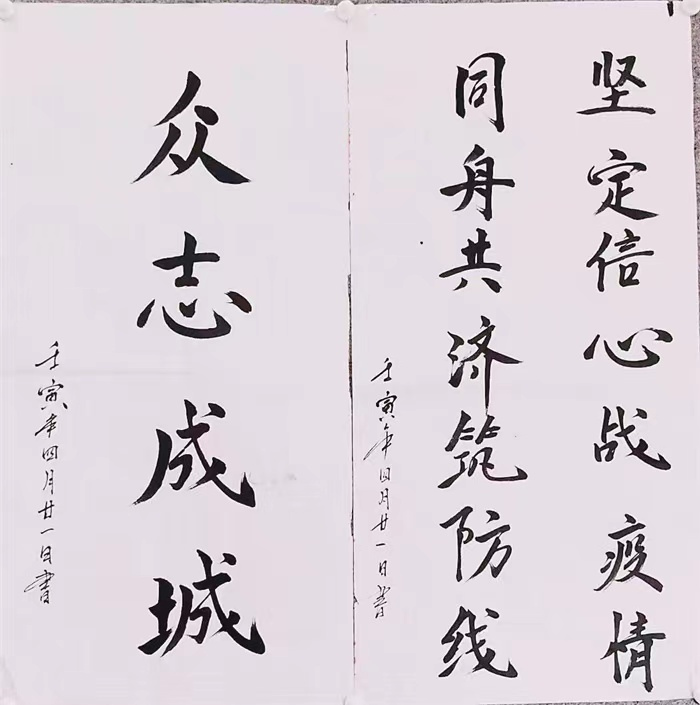 坚定信心战疫情
同舟共济筑防线
壬寅年四月廿一日书
众志成城
壬寅年四月廿一日书